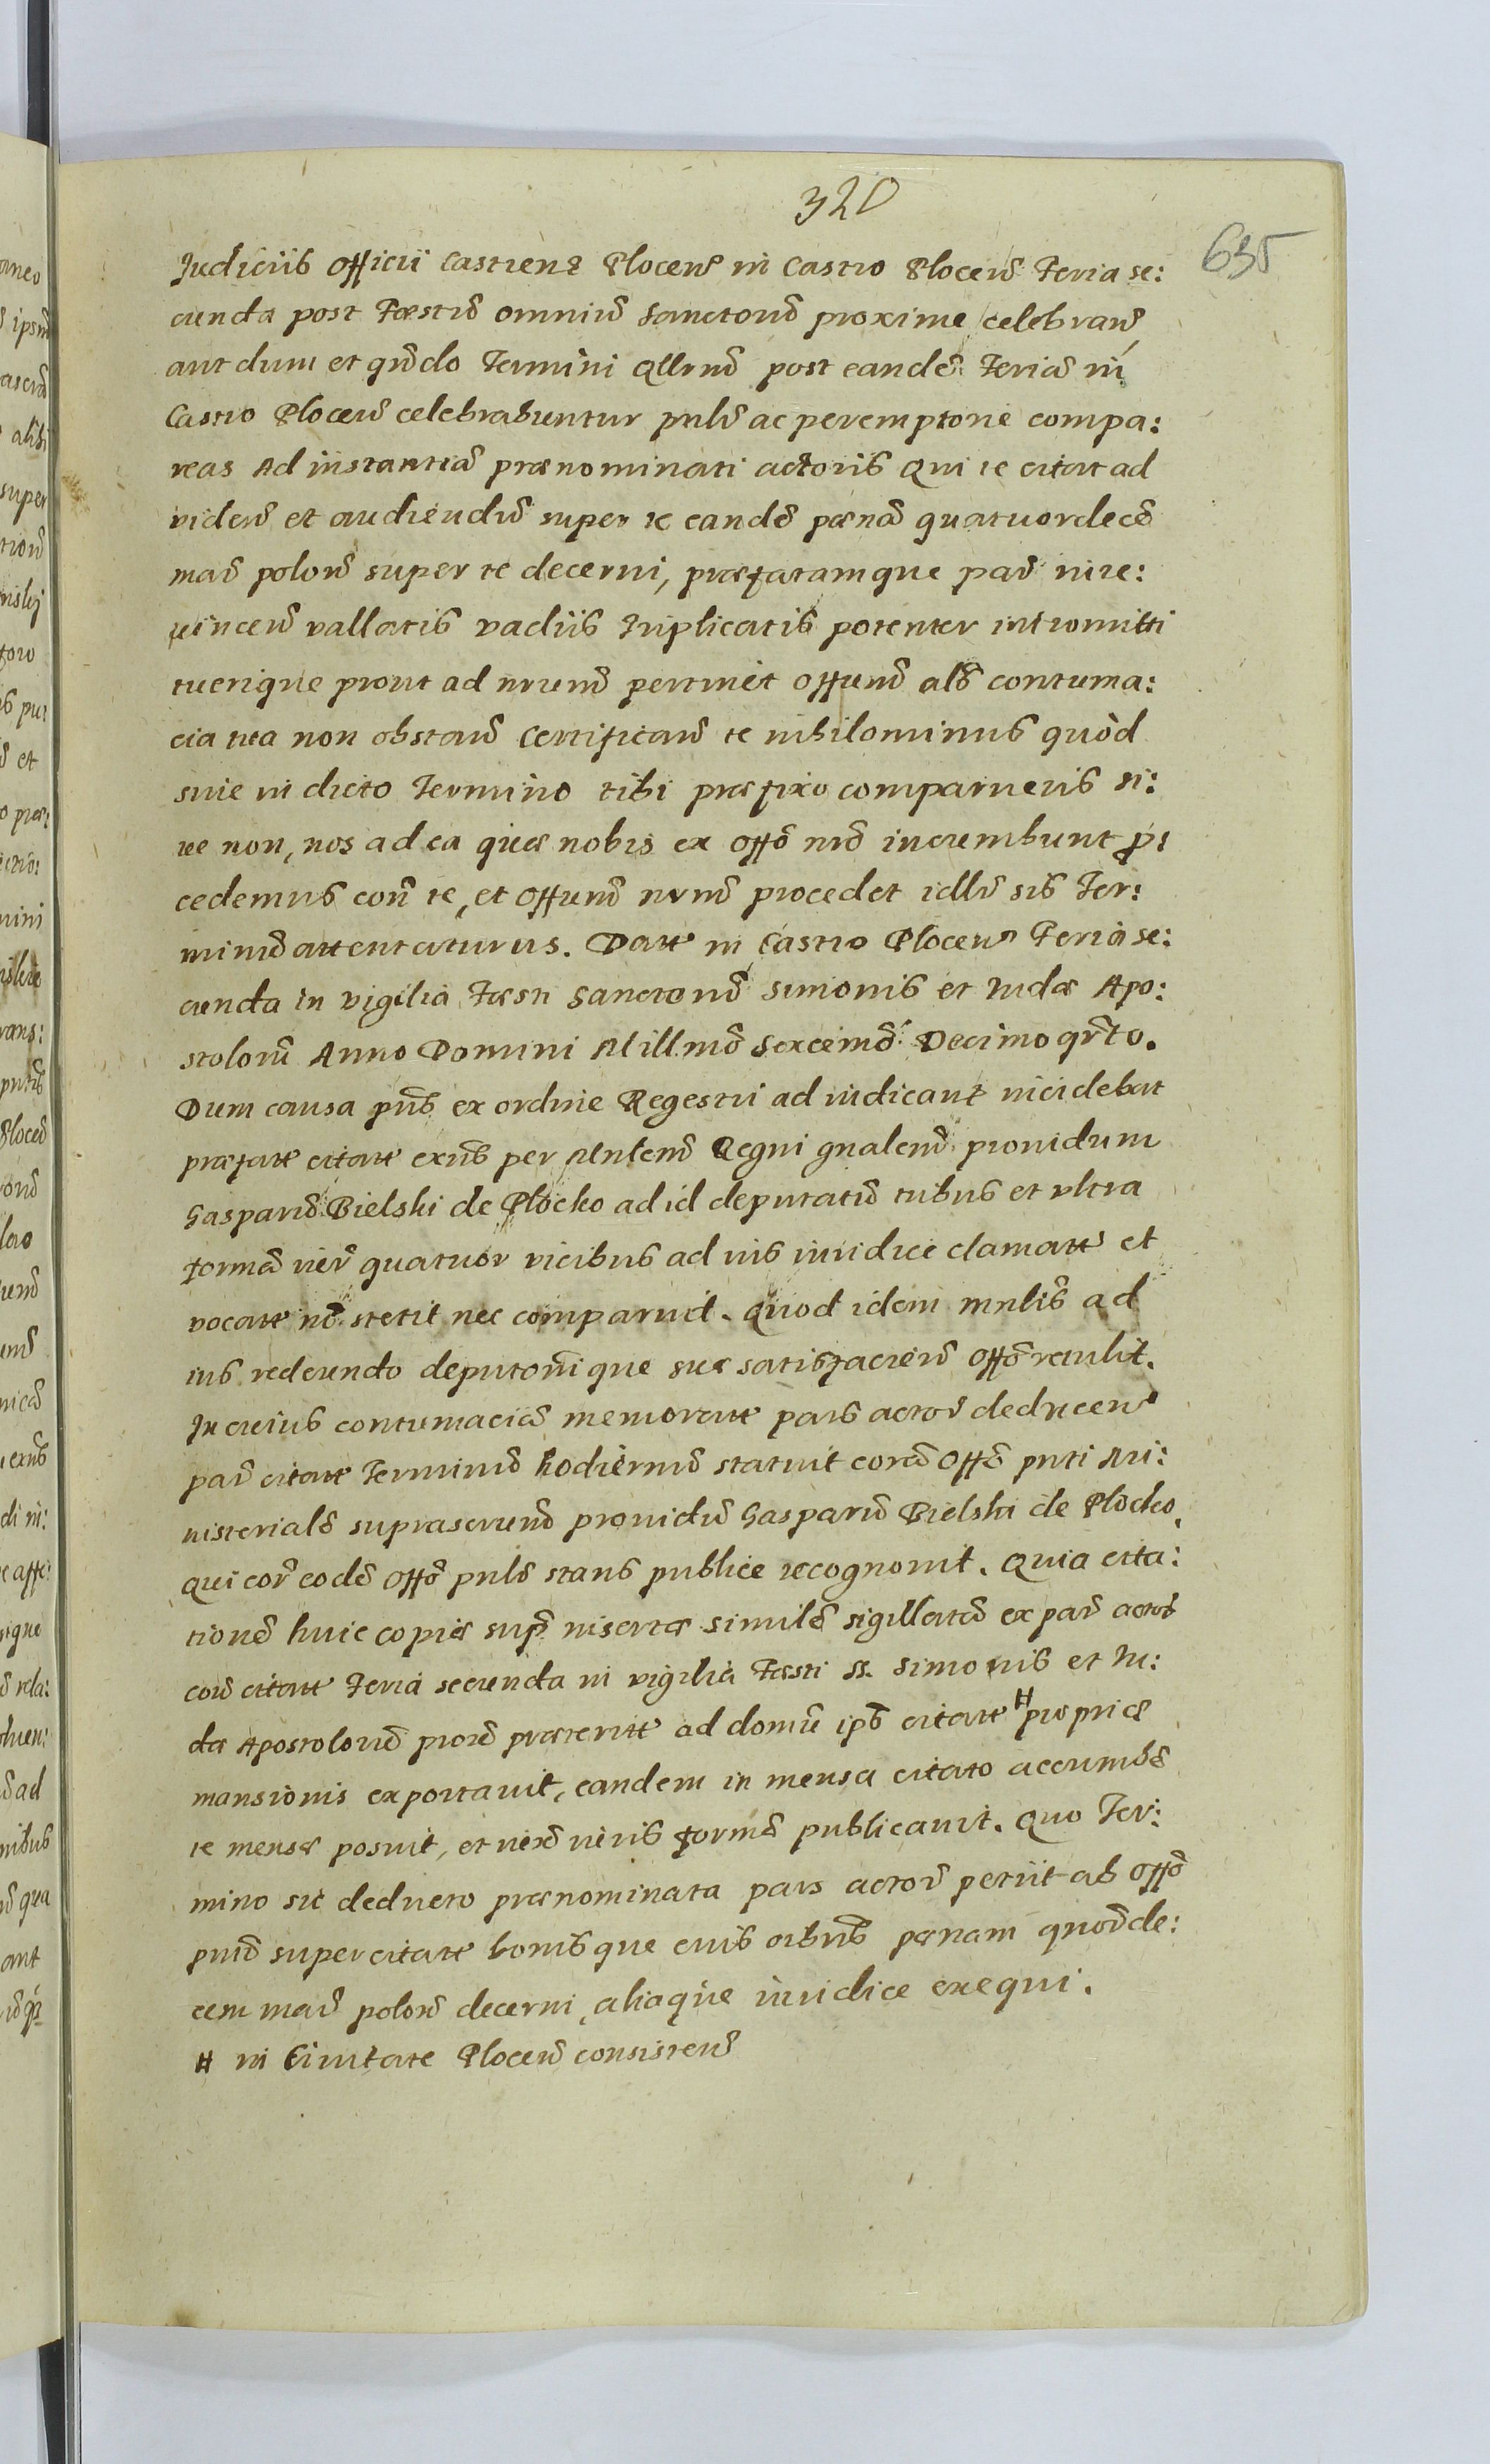 320
635
Judiciis Officii Castrens Plocen in Castro Plocen Feria se:
cunda post Fæstu omniu Sanctoru proxime celebran
aut dum et qndo Termini qllrm post eande Feria in
Castro Plocen celebrabuntur pnlr ac peremptorie compa:
reas Ad instantia prænominati actoris Qui te citat ad
videnu et audiendu super te eande pœna quatuordece
mar polon super te decerni, præfatamque par in re:
uincen vallatis vadiis triplicatis potenter intromitti
tuerique prout ad nrum pertinet offum als contuma:
cia tua non obstan Certifican te nihilominus quòd
siue in dicto Termino tibi præfixo comparueris si:
ue non, nos ad ea quæ nobis ex offo nro incumbunt p:
cedemus con te, et offum nrum procedet idlr sis Ter:
minu attentaturus. Datt in Castro Plocen Feria se:
cunda in vigilia Fæsti Sanctoru Simonis et Judæ Apo:
stoloru Anno Domini Millmo Sexcemo Decimo qrto.
Dum causa pns ex ordine Regestri ad iudicant incidebat
præfatt citatt exns per Mnlem Regni gnalem prouidum
Gasparu Bielski de Plocko ad id deputatu tribus et vltra
forma iur quatuor vicibus ad ius iuridice clamatt et
vocatt no stetit nec comparuit. Quod idem mnlis ad
ius redeundo deputonique suæ satisfacien offo retulit.
In cuius contumacia memoratt pars actor deducen
par citatt Terminu hodiernu statuit cora Offo pnti Mi:
nisteriale suprascru prouidu Gasparu Bielski de Plocko,
qui cor eode offo pnlr stans publice recognouit. Quia cita:
tione huic copiæ supr insertæ simile sigillata ex par actor
con citatt Feria secunda in vigilia Fæsti SS. Simonis et Ju:
dæ Apostoloru proxe præteritt ad domu ips citatt # propriæ
mansionis exportauit, eandem in mensa citato accumbe
te mensæ posuit, et iuxa iuris forma publicauit. Quo Ter:
mino sic deducto prænominata pars actor petiit ab offo
pnti super citatt bonisque eius oibus pœnam quorde:
cem mar polon decerni, aliaque iuridice exequi.
# in Ciuitate Plocen consisten